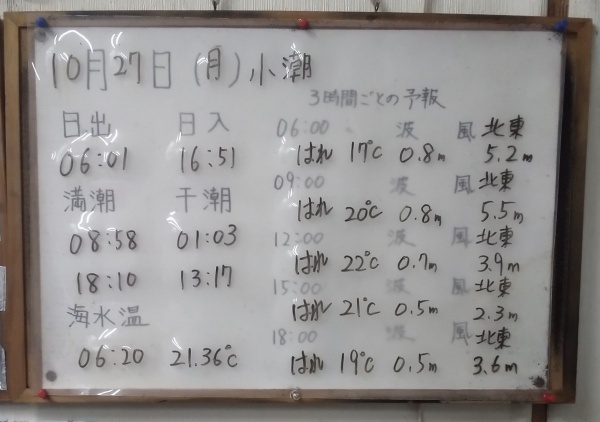 10月27日(月)小潮
日出 日入
06:01 16:51
満潮 干潮
08:58 01:03
18:10 13:17
海水温
06:20 21.36℃
3時間ごとの予報
06:00 波 風 北東
はれ 17℃ 0.8m 5.2m
09:00 波 風 北東
はれ 20℃ 0.8m 5.5m
12:00 波 風 北東
はれ 22℃ 0.7m 3.9m
15:00 波 風 北東
はれ 21℃ 0.5m 2.3m
18:00 波 風 北東
はれ 19℃ 0.5m 3.6m